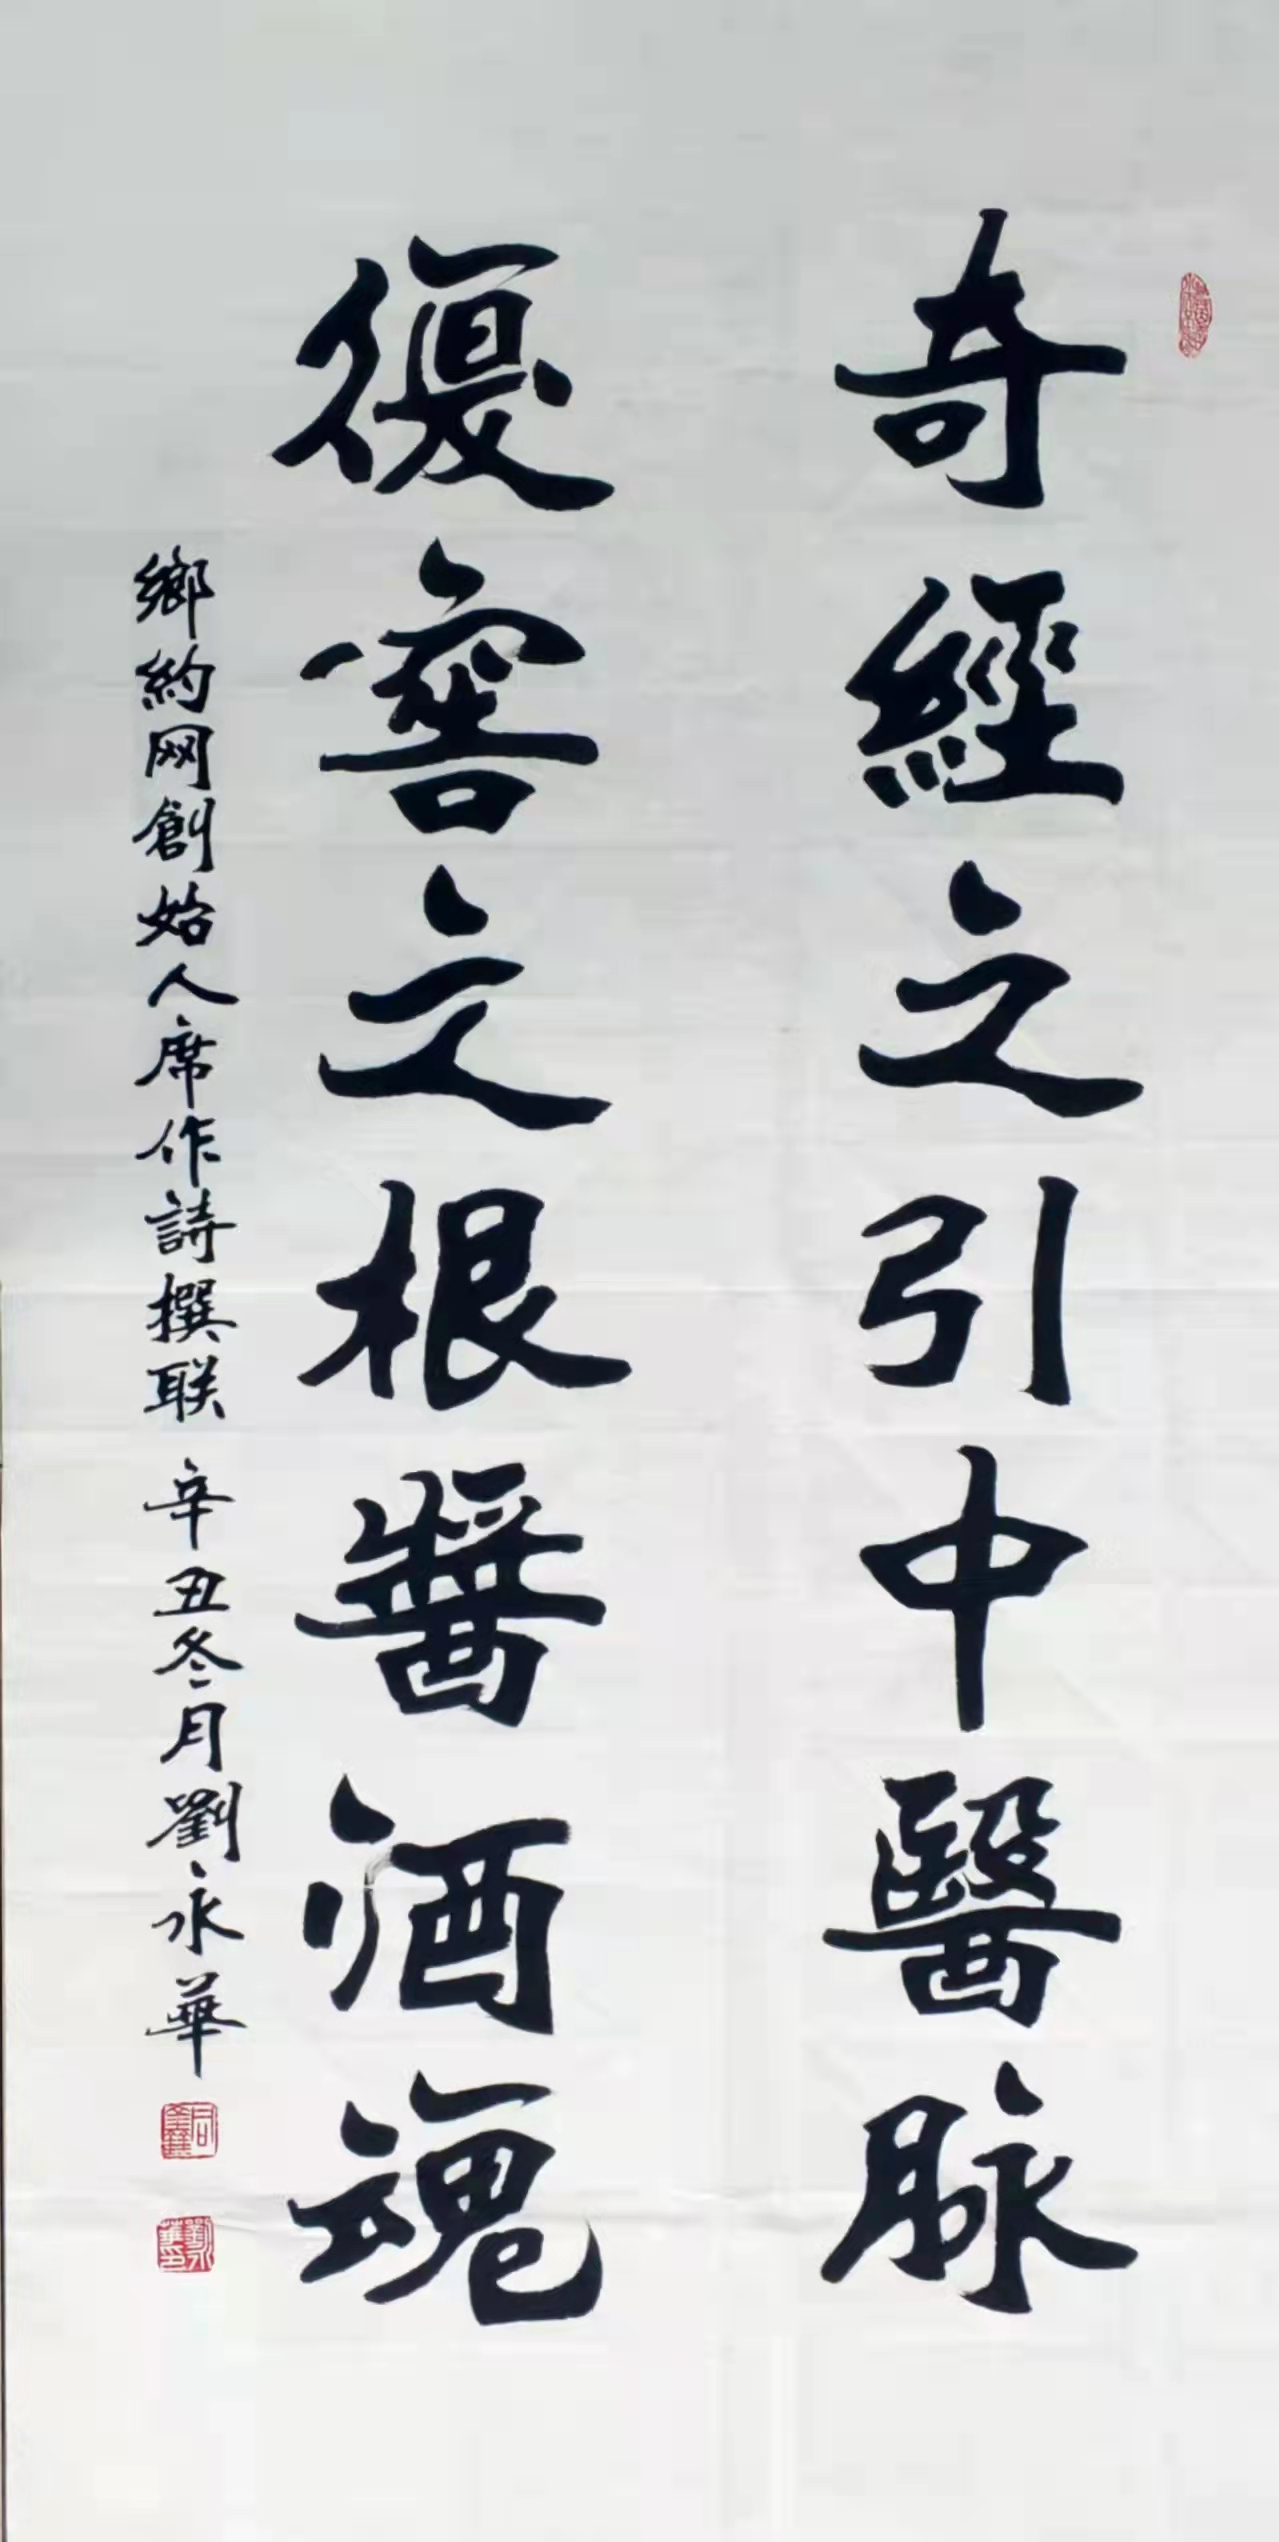 奇經之引中醫脉
復窖之根醬酒魂
鄉約网創始人席作詩撰联 辛丑冬月劉永華